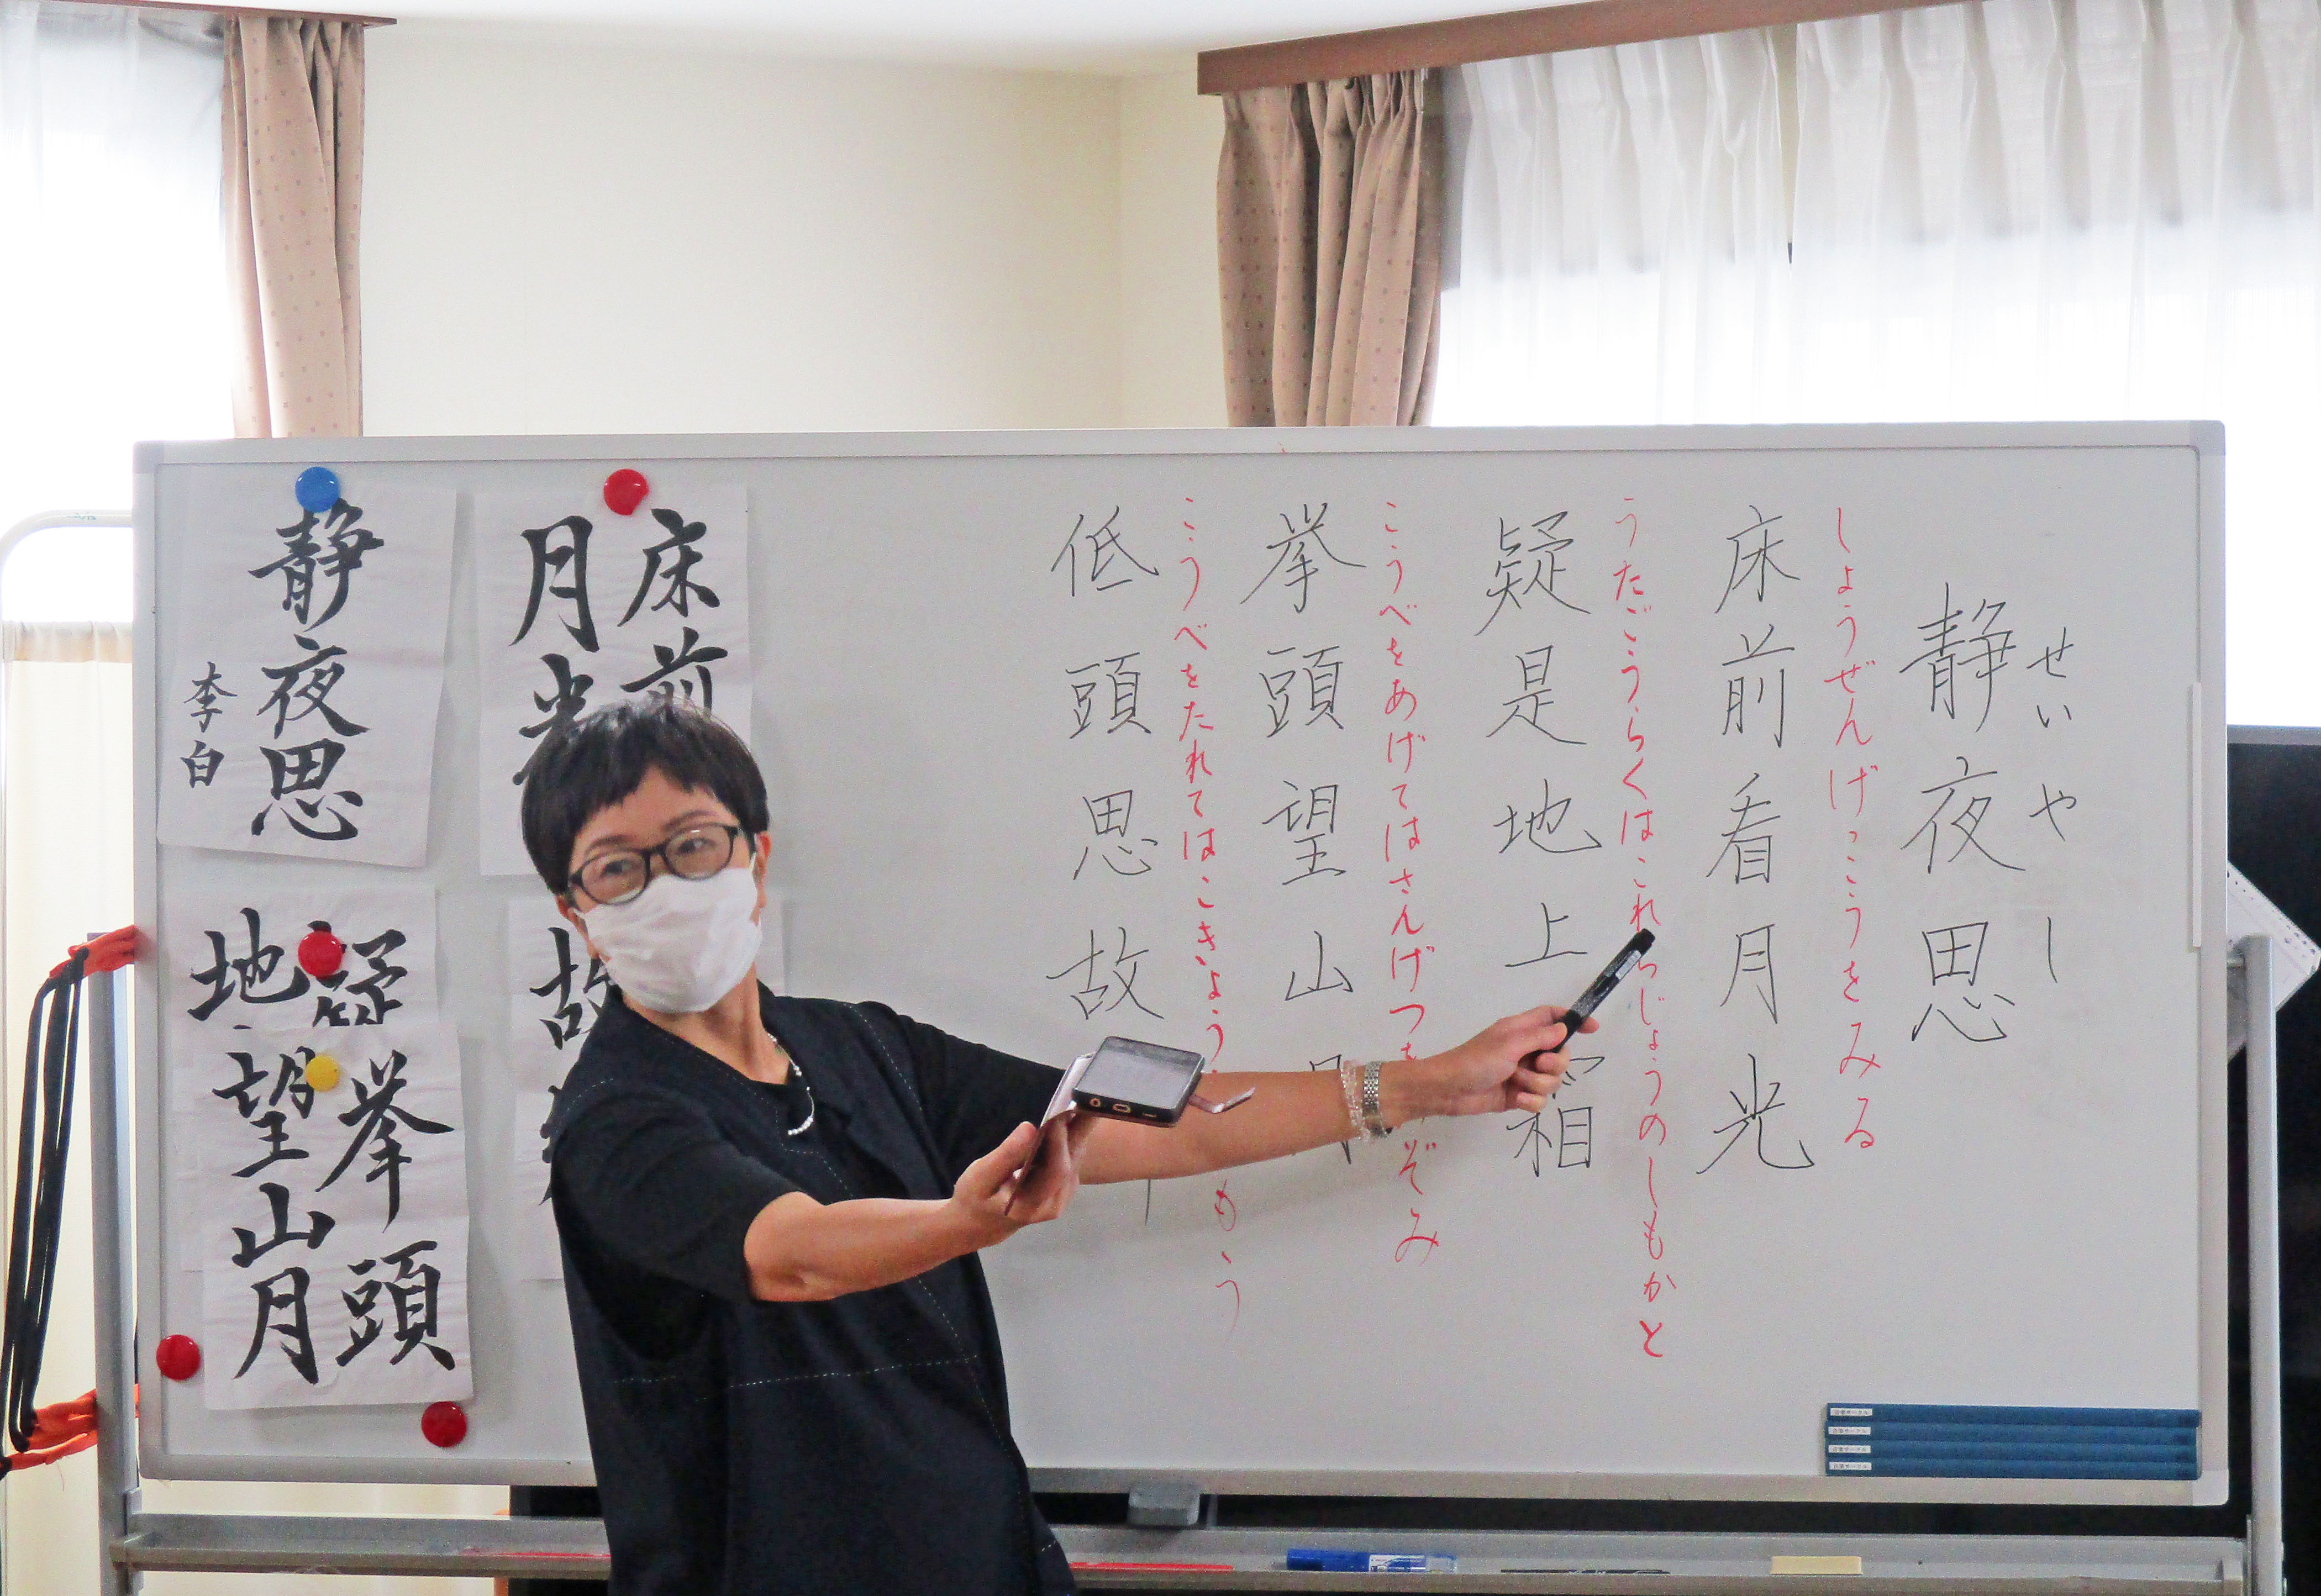 せいやし
静夜思
しょうぜんげっこうをみる
床前看月光
うたごうらくはこれじょうのしもかと
疑是地上霜
こうべをあげてはさんげつぞみ
挙頭望山
こうべをたれてはこきょうもう
低頭思故
床前
月光
静夜思
李白
疑
地
挙頭
望山月
故